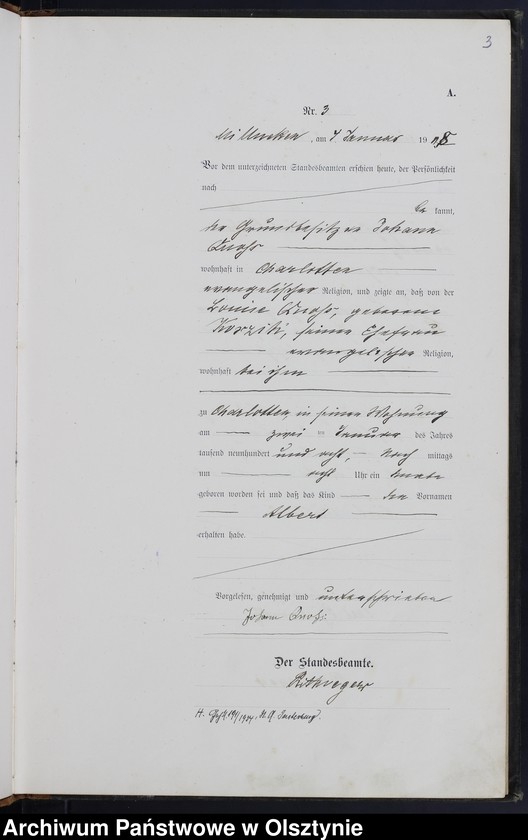 3
A.
Nr. 3
am 4 Januar 1908
Vor dem unterzeichneten Standesbeamten erschien heute, der Persönlichkeit
nach
be kannt,
der Grundbesitzer Johann
wohnhaft in Charlotten
evangelischer Religion, und zeigte an, daß von der
Louise geborene
seiner Ehefrau
evangelischer Religion,
wohnhaft bei ihm
zu Charlotten, in seiner Wohnung
am zwei ten Januar des Jahres
tausend neunhundert und acht, Nach mittags
um acht Uhr ein Knabe
geboren worden sei und daß das Kind den Vornamen
Albert
erhalten habe.
Vorgelesen, genehmigt und unterschrieben
Johann
Der Standesbeamte.
H.
Archiwum Państwowe w Olsztynie